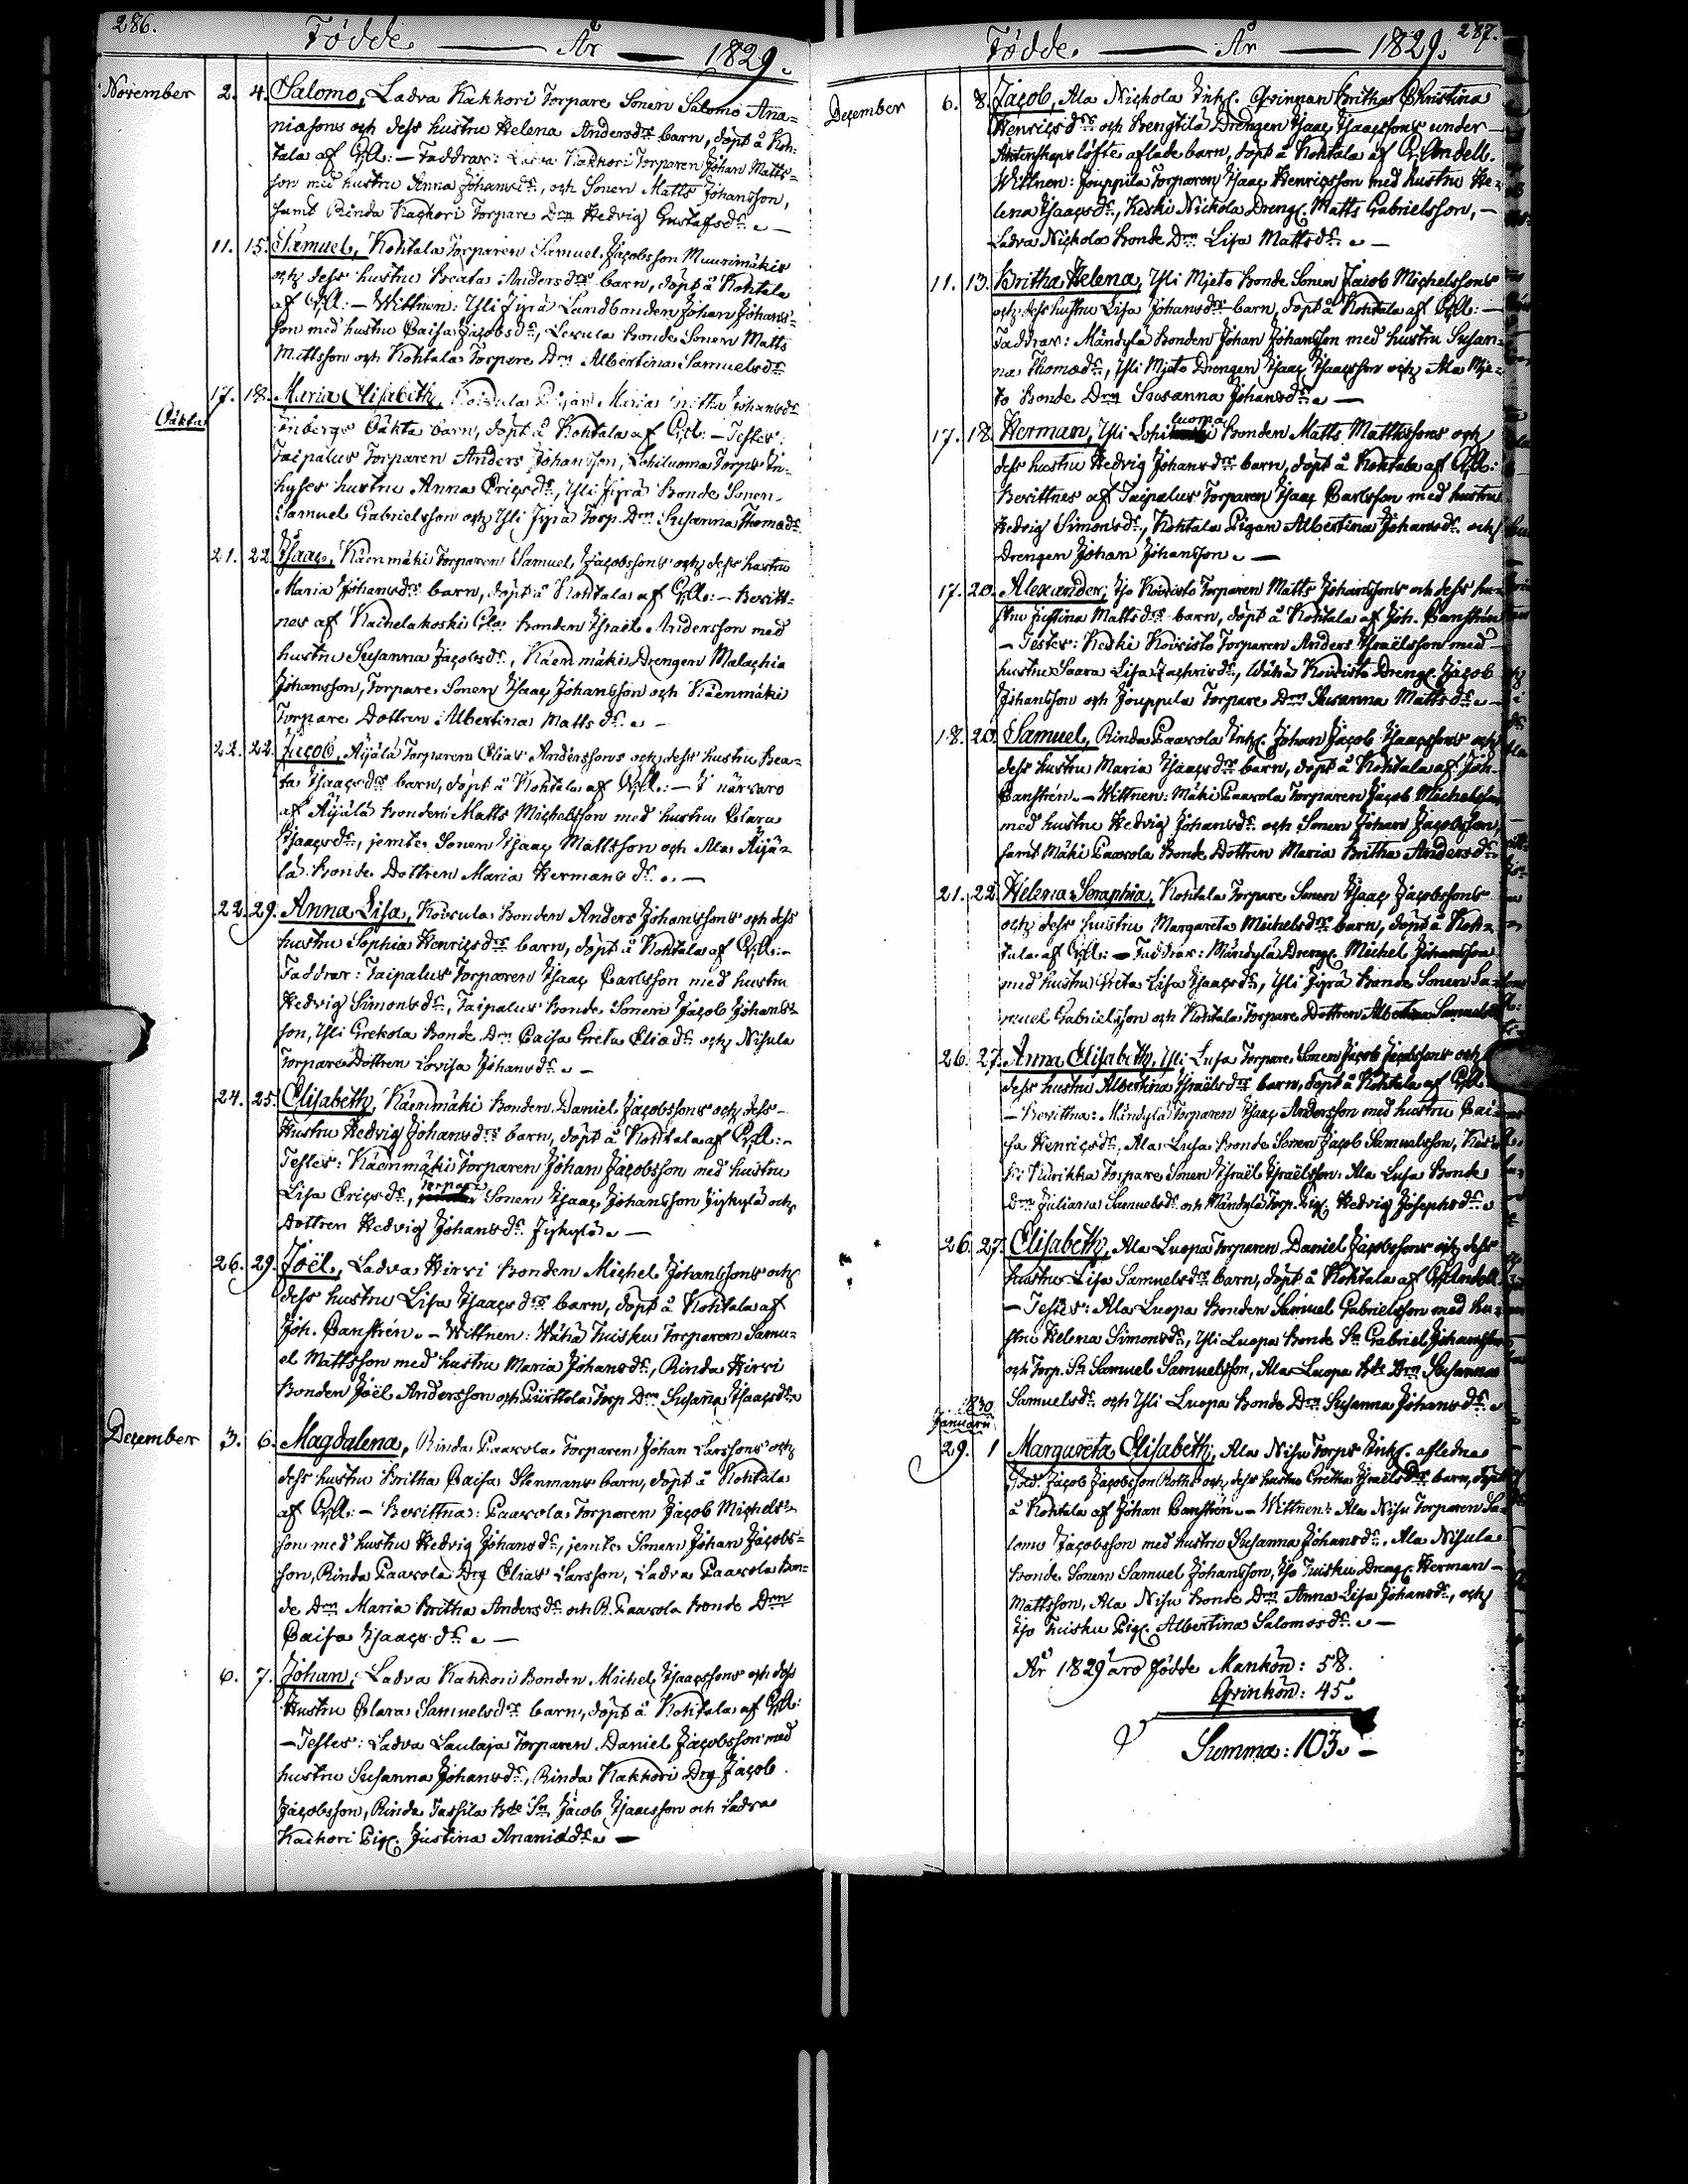 286.
Födde. — År — 1829.
November 2. 4. Salomo, Ladva Kakkori Torpare Sonen Salomo Ana=
niasons och dess hustru Helena Andersdrs barn, döpt å Koh=
tala af C.A.: — Faddrar: Ladva Kakkori Torparen Johan Matts=
son med hustru Anna Johansdr, och Sonen Matts Johansson,
samt Rinda Kackori Torpare Drn Hedvig Gustafsdr. —
11. 15. Samuel, Kohtala Torparen Samuel Jacobsson Muurimäkis
och dess hustru Beata Andersdrs barn, döpt å Kohtala
af C.A.: — Wittnen: Yli Jyrä Landbonden Johan Johans=
son med hustru Caisa Jacobsdr, Bonde Sonen Matts
Mattsson och Kohtala Torpare Drn Albertina Samuelsdr
17. 18. Maria Elisabeth, Maria Johansdr
Oäkta
Oäkta barn, döpt å Kohtala af C.A.: — Testes:
Taipalus Torparen Anders Johansson, Lohiluoma Torps In=
hyses hustru Anna Ericsdr, Yli Jyrä Bonde Sonen
Samuel Gabrielsson och Yli Jyrä Torp. Drn Susanna Thomasdr
21. 22. Isaac, Käenmäki Torparen Samuel Jacobssons och dess hustru
Maria Johansdrs barn, döpt å Kohtala af C.A.: — Bevitt=
nas af Bonden Israel Andersson med
hustru Susanna Jacobsdr, Käenmäki Drengen Malachia
Johansson, Torpare Sonen Isaac Johansson och Käenmäki
Torpare Dottren Albertina Mattsdr. —
22. 22. Jacob, Äijälä Torparen Elias Anderssons och dess hustru Bea=
ta Isaacsdrs barn, döpt å Kohtala af C.A.: — I närvaro
af Äijälä Bonden Matts Michelsson med hustru Clara
Isaacsdr, jemte Sonen Isaac Mattsson och Ala Äijä=
lä Bonde Dottren Maria Hermansdr. —
22. 29. Anna Lisa, Koisula Bonden Anders Johanssons och dess
hustru Sophia Henricsdrs barn, döpt å Kohtala af C.A.: —
Faddrar: Taipalus Torparen Isaac Carlsson med hustru
Hedvig Simonsdr, Taipalus Bonde Sonen Jacob Johans=
son, Yli Grekola Bonde Drn Caisa Greta Eliædr och Nisula
Torpare Dottren Lovisa Johansdr. —
24. 25. Elisabeth, Käenmäki Bonden Daniel Jacobssons och dess
Hustru Hedvig Johansdrs barn, döpt å Kohtala af C.A.: —
Testes: Käenmäki Torparen Johan Jacobsson med hustru
Lisa Ericsdr, Torpare Sonen Isaac Johansson Jyskylä och
Dottren Hedvig Johansdr Jyskylä. —
26. 29. Joël, Ladva Hirvi Bonden Michel Johanssons och
dess hustru Lisa Isaacsdrs barn, döpt å Kohtala af
Joh. Canstrén. — Wittnen: Wähä Tuisku Torparen Samu=
el Mattsson med hustru Maria Johansdr, Rinda Hirvi
Bonden Joël Andersson och Torp Drn Susanna Isaacsdr
December 3. 6. Magdalena, Rinda Paavola Torparen Johan Larssons och
dess hustru Britha Caisa Stenmans barn, döpt å Kohtala
af C.A.: — Bevittna: Paavola Torparen Jacob Michels=
son med hustru Hedvig Johansdr, jemte Sonen Johan Jacobs=
son, Rinda Paavola Drg Elias Larsson, Ladva Paavola Bon=
de Drn Maria Britha Andersdr och R. Paavola Bonde Drn
Caisa Isaacsdr. —
6. 7. Johan, Ladva Kakkori Bonden Michel Isaacssons och dess
Hustru Clara Samuelsdrs barn, döpt å Kohtala af C.A:
— Testes: Ladva Laulaja Torparen Daniel Jacobsson med
hustru Susanna Johansdr, Rinda Kakkori Drg Jacob
Jacobsson, Rinda Passila Bde Sn Jacob Isaacsson och Ladva
Kackori Pig. Justina Ananiædr. —
287.
Födde. — År — 1829.
December 6. 8. Jacob, Ala Nickola Inh. Qvinnan Britha Christina
Henricsdrs och Bengtilä Drengen Isaac Isaacssons under
Äktenskaps löfte aflade barn, döpt å Kohtala af C. Andell.
Wittnen: Jouppila Torparen Isaac Henricsson med hustru He=
lena Isaacsdr, Keski Nickola Dreng. Matts Gabrielsson, —
Ladva Nickola Bonde Drn Lisa Mattsdr. —
11. 13. Britha Helena, Yli Mjeto Bonde Sonen Jacob Michelssons
och dess hustru Lisa Johansdrs barn, döpt å Kohtala af C.A: —
Faddrar: Mändylä Bonden Johan Johansson med hustru Susan=
na Thomædr, Yli Mjeto Drengen Isaac Isaacsson och Ala Mje=
to Bonde Drn Susanna Johansdr. —
17. 18. Herman, Yli Lohiluoma Bonden Matts Mattssons och
dess hustru Hedvig Johansdrs barn, döpt å Kohtala af C.A:
Bevittnes af Taipalus Torparen Isaac Carlsson med hustru
Hedvig Simonsdr, Kohtala Pigan Albertina Johansdr och
Drengen Johan Johansson. —
17. 20. Alexander, Iso Koivisto Torparen Matts Johanssons och dess hu=
stru Justina Mattsdrs barn, döpt å Kohtala af Joh. Canstrén
— Testes: Keski Koivisto Torparen Anders Israëlsson med
hustru Saara Lisa Zachrisdr, Wähä Koivisto Dreng. Jacob
Johansson och Jouppila Torpare Drn Susanna Mattsdr. —
18. 20. Samuel, Rinda Paavola Inh. Johan Jacob Isaacssons och
dess hustru Maria Isaacsdrs barn, döpt å Kohtala af Joh.
Canstrén. — Wittnen: Mäki Paavola Torparen Jacob Michelsson
med hustru Hedvig Johansdr och Sonen Johan Jacobsson,
samt Mäki Paavola Bonde Dottren Maria Britha Andersdr.
21. 22. Helena Seraphia, Kohtala Torpare Sonen Isaac Jacobssons
och dess hustru Margareta Michelsdrs barn, döpt å Koh=
tala af C.A: — Faddrar: Mändylä Dreng. Michel Johansson
med hustru Greta Lisa Isaacsdr, Yli Jyrä Bonde Sonen Sa=
muel Gabrielsson och Kohtala Torpare Dottren Albertina Samuelsd
26. 27. Anna Elisabeth, Yli Lusa Torpare Sonen Jacob Jacobssons och
dess hustru Albertina Israëlsdrs barn, döpt å Kohtala af C.A:
— Bevittna: Mändylä Torparen Isaac Andersson med hustru Cai=
sa Henricsdr, Ala Lusa Bonde Sonen Jacob Samuelsson,
Torpare Sonen Israël Israëlsson, Ala Lusa Bonde
Drn Juliana Samuelsdr och Mändylä Torp. Pig. Hedvig Josephsdr.
26. 27. Elisabeth, Ala Luopa Torparen Daniel Jacobssons och dess
hustru Lisa Samuelsdrs barn, döpt å Kohtala af C. Andell.
— Testes: Ala Luopa Bonden Samuel Gabrielsson med hu=
stru Helena Simonsdr, Yli Luopa Bonde Sn Gabriel Johansson
och Torp. Sn Samuel Samuelsson, Ala Luopa Bde Drn Susanna
Samuelsdr och Yli Luopa Bonde Drn Susanna Johansdr.
1830
Januarii
29. 1 Margareta Elisabeth, Ala Nisu Torps Inh. afledne
Sold. Jacob Jacobsson Roths och dess hustru Gretha Israëlsdrs barn, döpt
å Kohtala af Johan Canstrén. — Wittnen: Ala Nisu Torparen Sa=
lomo Jacobsson med hustru Susanna Johansdr, Ala Nisula
Bonde Sonen Samuel Johansson, Iso Tuisku Dreng. Herman
Mattsson, Ala Nisu Bonde Drn Anna Lisa Johansdr, och
Iso Tuisku Pig. Albertina Salomosdr. —
År 1829 äro födde Mankön: 58.
Qvinkön: 45.
Summa: 103. —